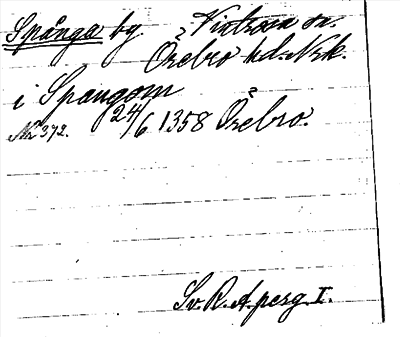 Spånga by Vintrosa sn.
Örebro hd. Nrk.
i Spangom
24/6 1358 Örebro.
Nr 372.
Sv. R. A. perg. I.